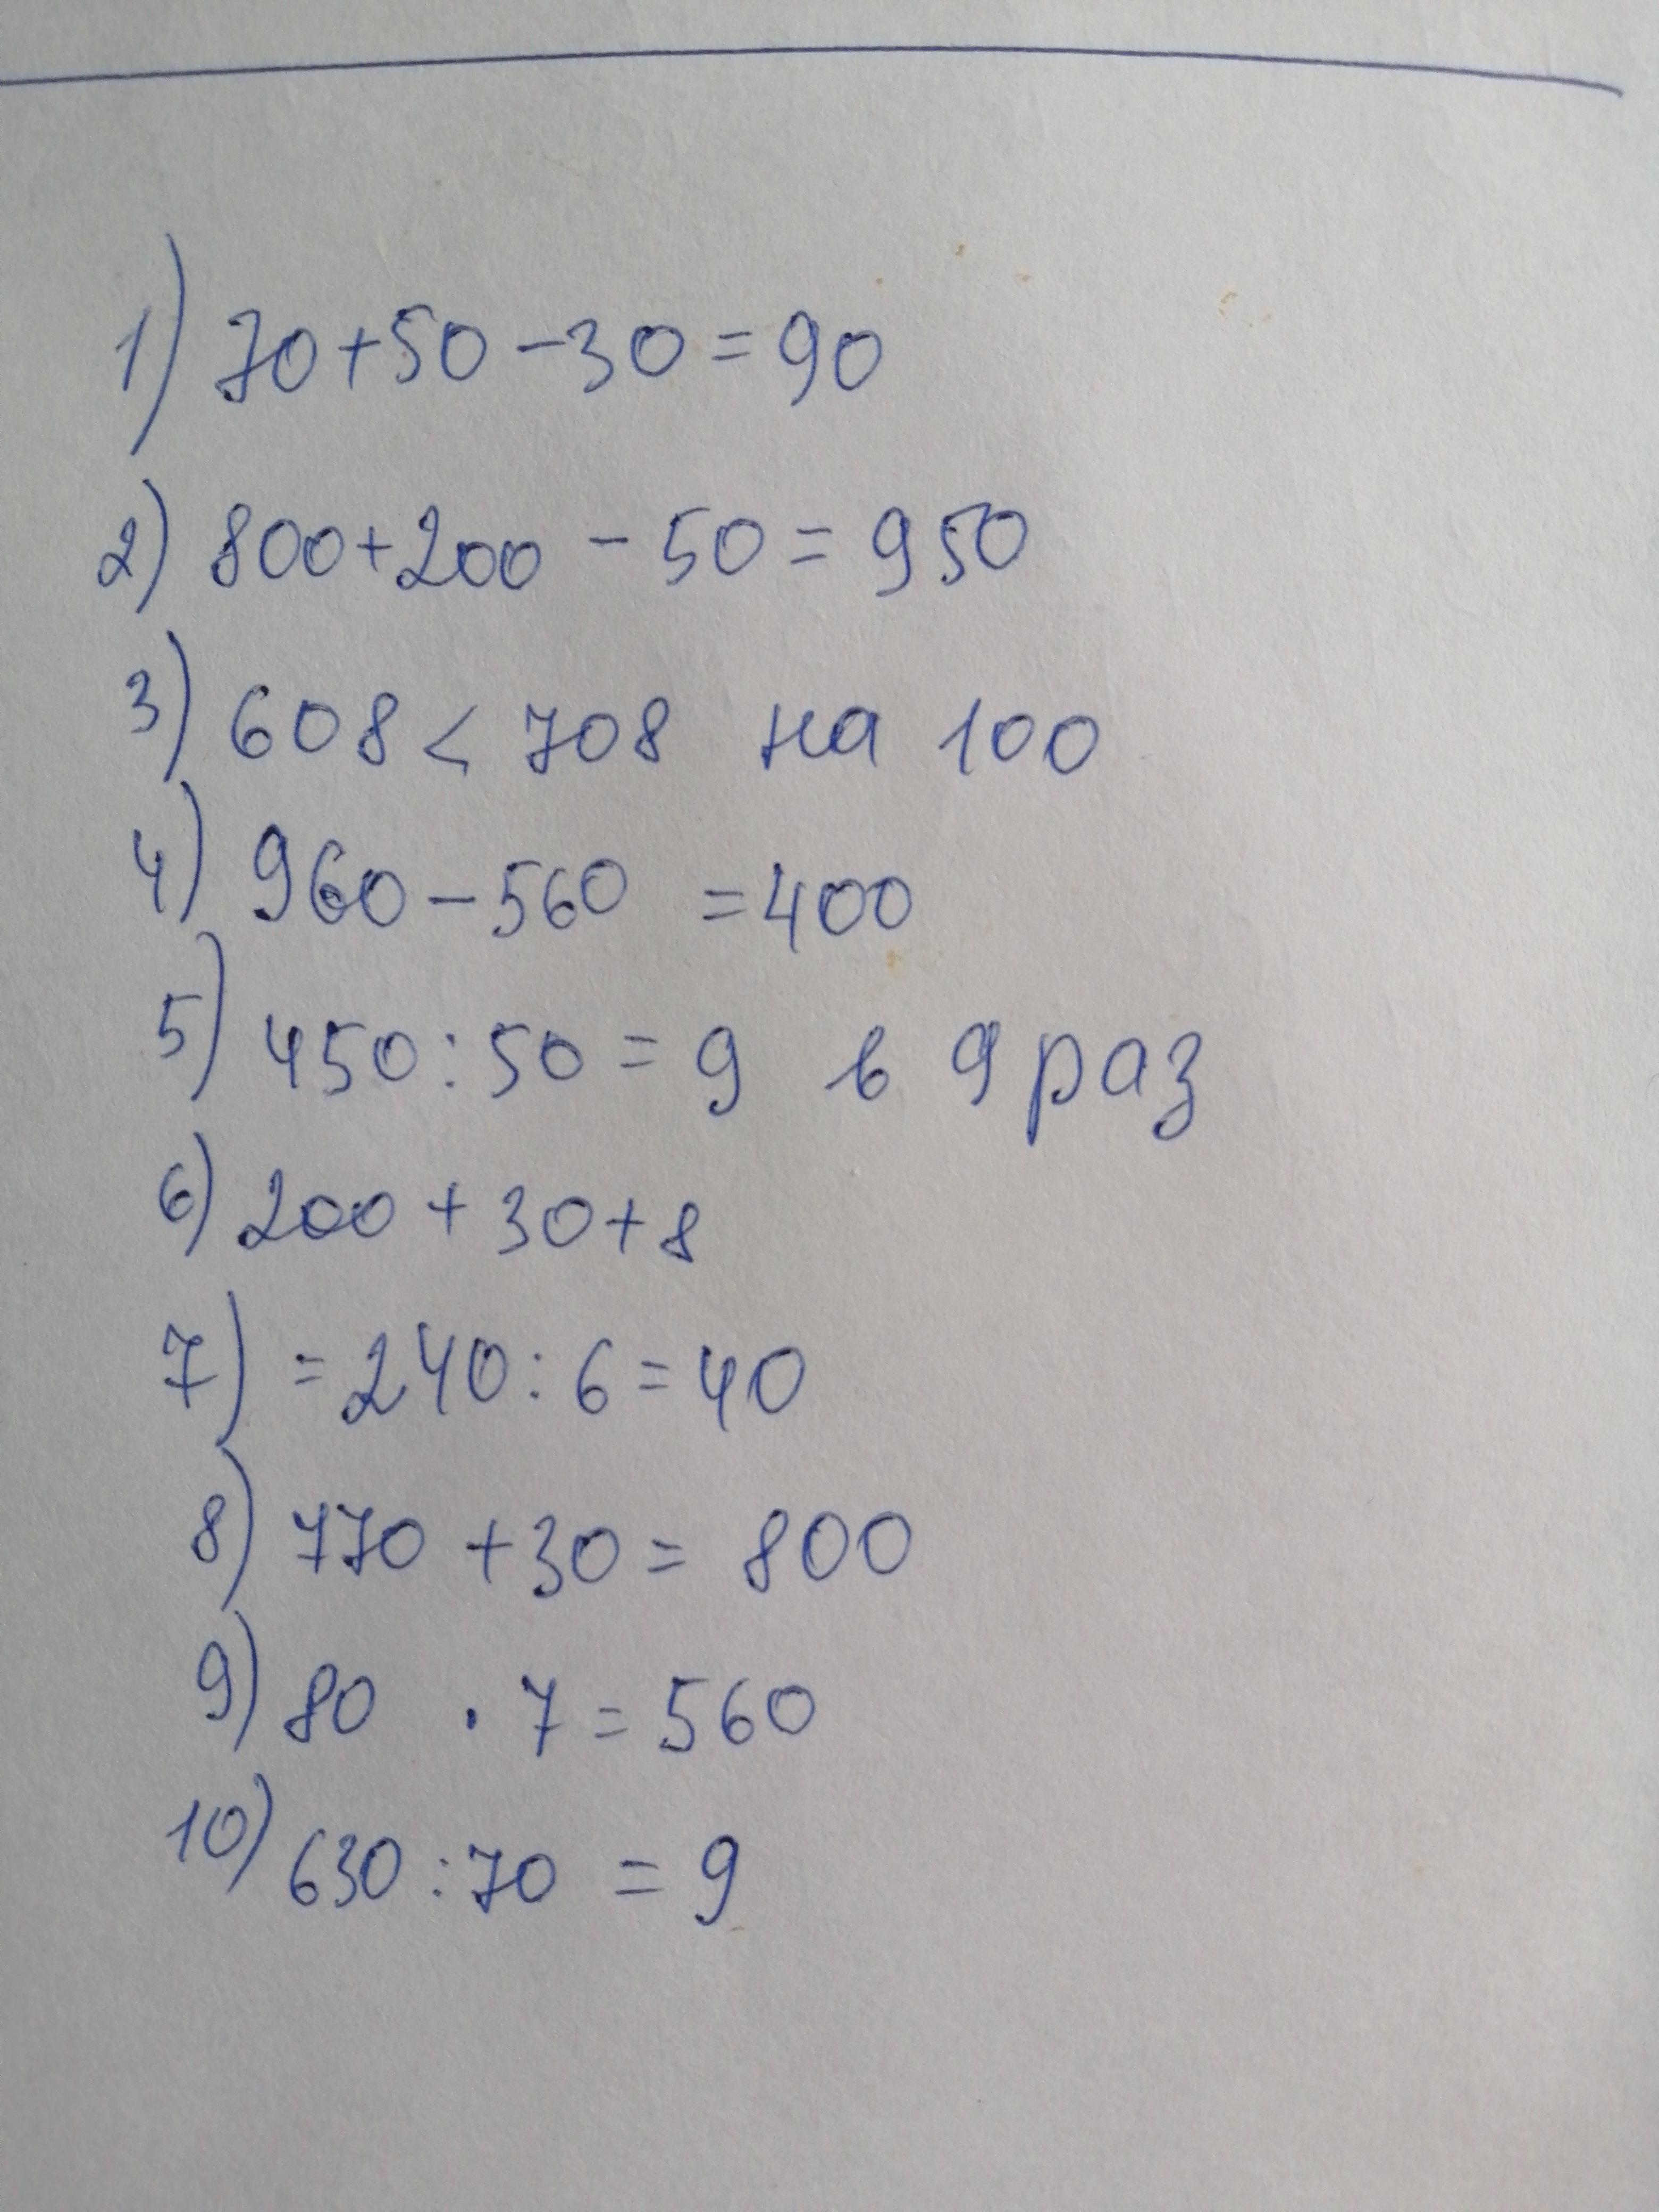 1) 70+50-30=90
2) 800+200 - 50=950
3) 608 < 708 на 100
4) 960-560 =400
5) 450:50=9 в 9 раз
6) 200+30+8
7) =240:6=40
8) 770 +30= 800
9) 80 . 7=560
10) 630:70 = 9